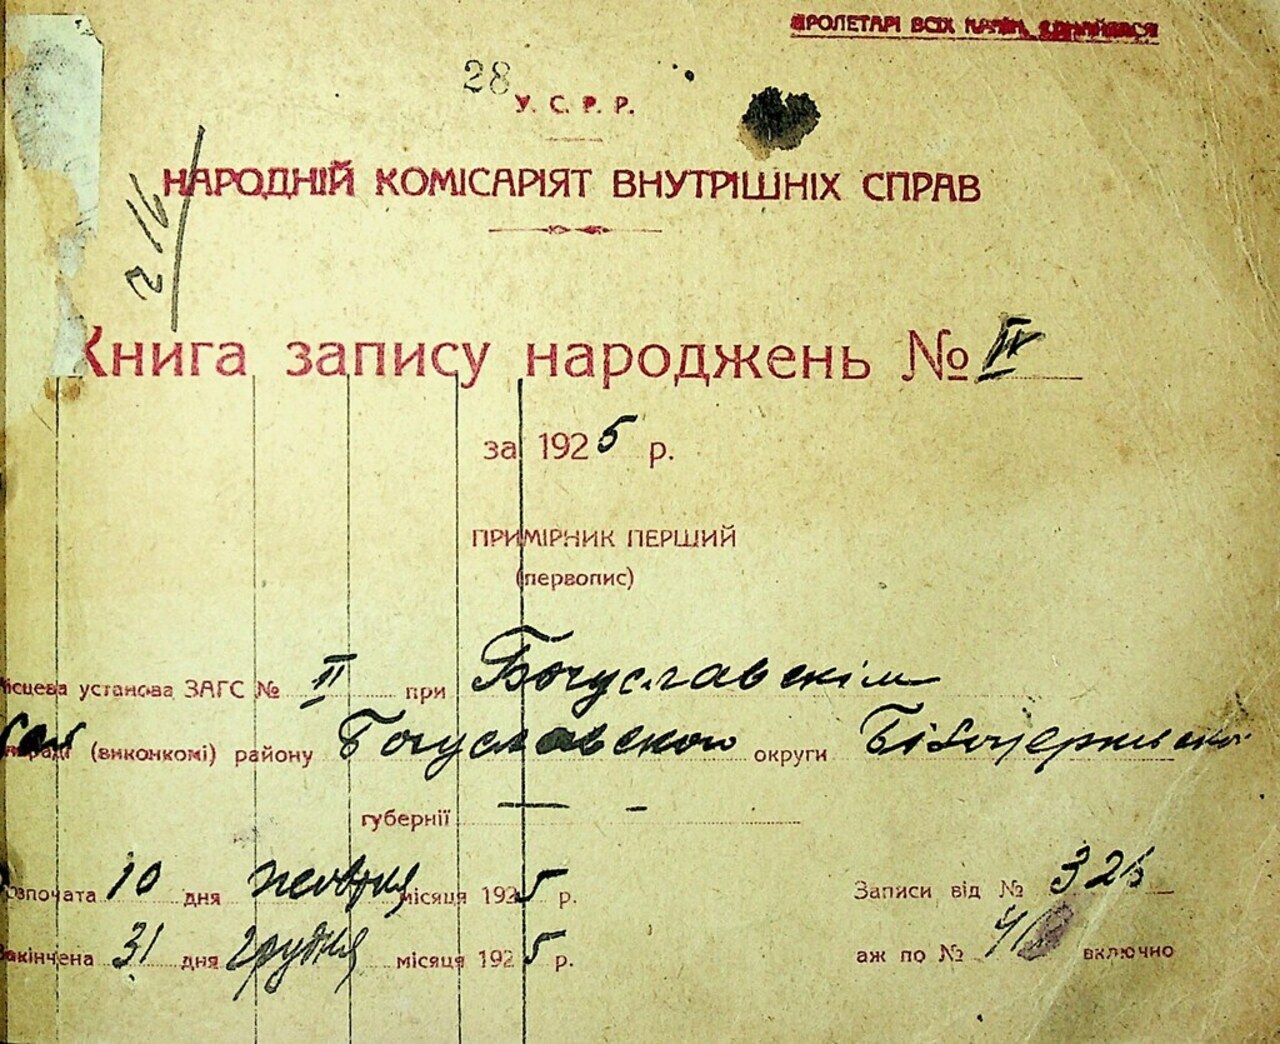 ПРОЛЕТАРІ ВСІХ КРАЇН, ЄДНАЙТЕСЯ
28
У. С. Р. Р.
НАРОДНІЙ КОМІСАРІЯТ ВНУТРІШНІХ СПРАВ
216
Книга запису народжень №
за 1925 р.
ПРИМІРНИК ПЕРШИЙ
(первопис)
Місцева установа ЗАГС № II при Богуславскім
(виконкомі) району Богуславскою округи Білоцерківскої
губернії — -
Розпочата 10 дня жовтня місяця 1925 р. Записи від № 326
Закінчена 31 дня грудня місяця 1925 р. аж по № включно